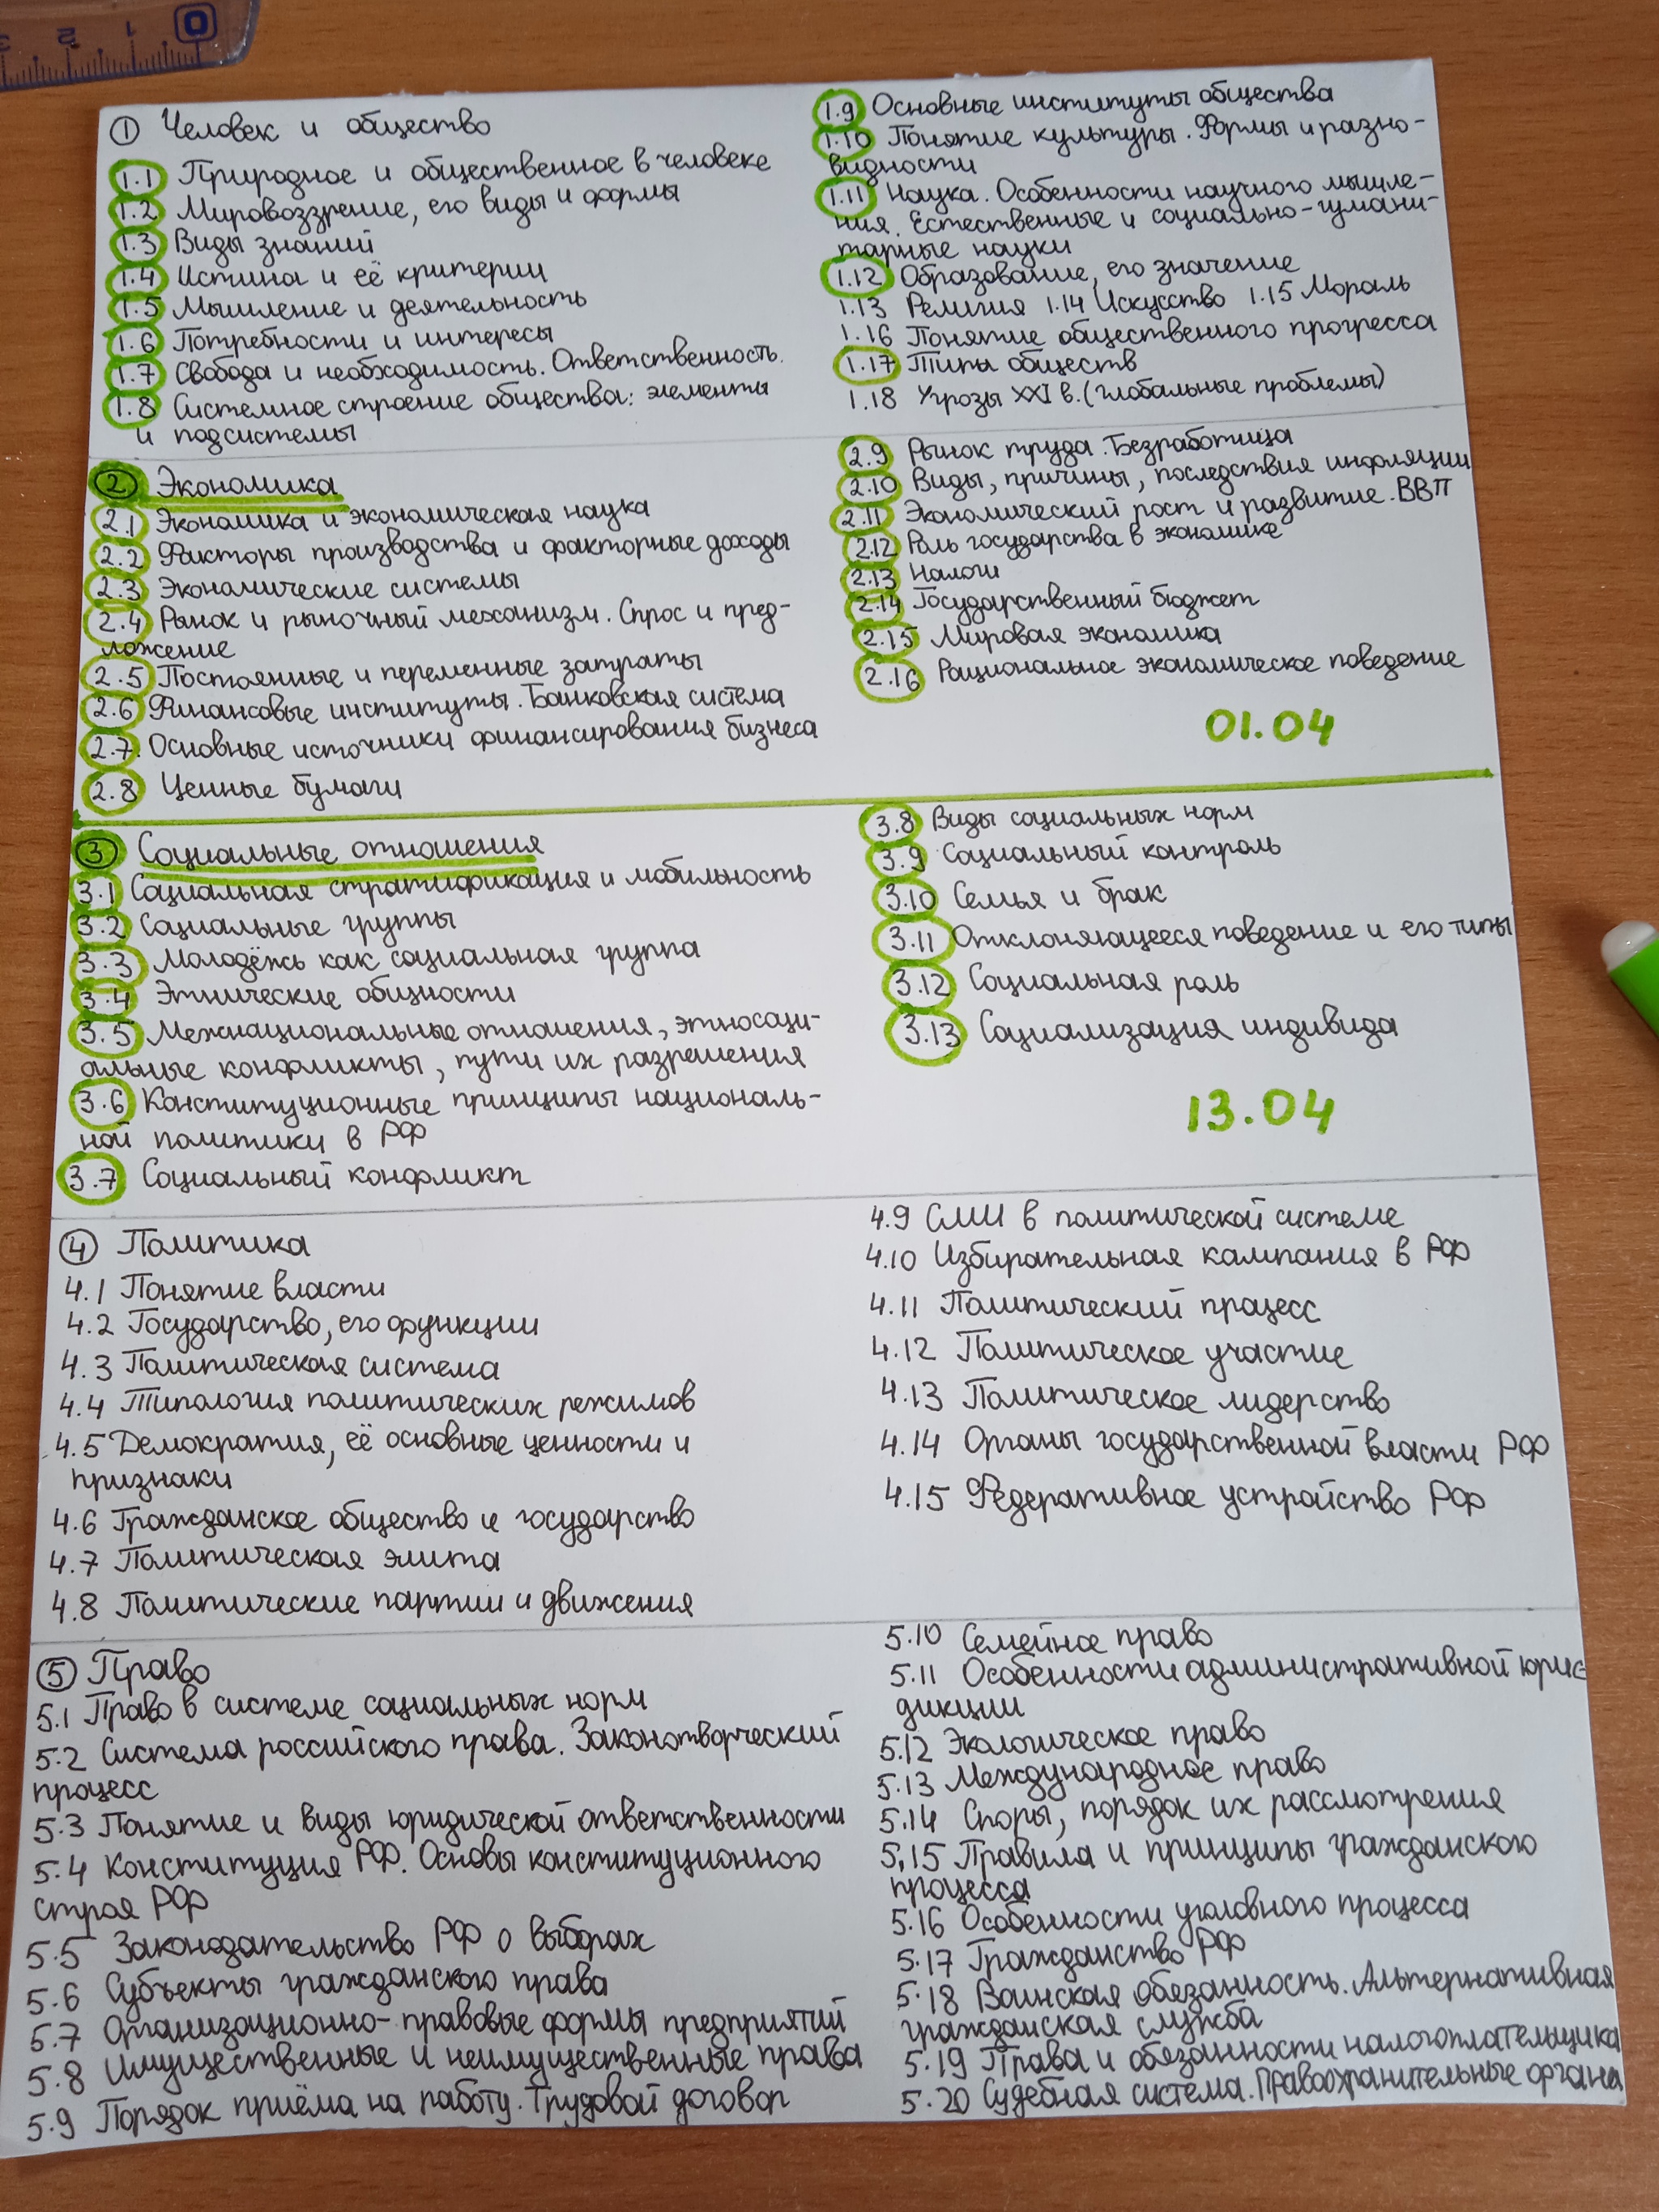 0 1 2 3
① Человек и общество
1.1 Природное и общественное в человеке
1.2 Мировоззрение, его виды и формы
1.3 Виды знаний
1.4 Истина и её критерии
1.5 Мышление и деятельность
1.6 Потребности и интересы
1.7 Свобода и необходимость. Ответственность.
1.8 Системное строение общества: элементы
и подсистемы
1.9 Основные институты общества
1.10 Понятие культуры. Формы и разно-
видности
1.11 Наука. Особенности научного мышле-
ния. Естественные и социально-гумани-
тарные науки
1.12 Образование, его значение
1.13 Религия 1.14 Искусство 1.15 Мораль
1.16 Понятие общественного прогресса
1.17 Типы обществ
1.18 Угрозы XXI в. (глобальные проблемы)
② Экономика
2.1 Экономика и экономическая наука
2.2 Факторы производства и факторные доходы
2.3 Экономические системы
2.4 Рынок и рыночный механизм. Спрос и пред-
ложение
2.5 Постоянные и переменные затраты
2.6 Финансовые институты. Банковская система
2.7. Основные источники финансирования бизнеса
2.8 Ценные бумаги
2.9 Рынок труда. Безработица
2.10 Виды, причины, последствия инфляции
2.11 Экономический рост и развитие. ВВП
2.12 Роль государства в экономике
2.13 Налоги
2.14 Государственный бюджет
2.15 Мировая экономика
2.16 Рациональное экономическое поведение
01.04
③ Социальные отношения
3.1 Социальная стратификация и мобильность
3.2 Социальные группы
3.3 Молодёжь как социальная группа
3.4 Этнические общности
3.5 Межнациональные отношения, этносоци-
альные конфликты, пути их разрешения
3.6 Конституционные принципы националь-
ной политики в РФ
3.7 Социальный конфликт
3.8 Виды социальных норм
3.9 Социальный контроль
3.10 Семья и брак
3.11 Отклоняющееся поведение и его типы
3.12 Социальная роль
3.13 Социализация индивида
13.04
④ Политика
4.1 Понятие власти
4.2 Государство, его функции
4.3 Политическая система
4.4 Типология политических режимов
4.5 Демократия, её основные ценности и
признаки
4.6 Гражданское общество и государство
4.7 Политическая элита
4.8 Политические партии и движения
4.9 СМИ в политической системе
4.10 Избирательная кампания в РФ
4.11 Политический процесс
4.12 Политическое участие
4.13 Политическое лидерство
4.14 Органы государственной власти РФ
4.15 Федеративное устройство РФ
⑤ Право
5.1 Право в системе социальных норм
5.2 Система российского права. Законотворческий
процесс
5.3 Понятие и виды юридической ответственности
5.4 Конституция РФ. Основы конституционного
строя РФ
5.5 Законодательство РФ о выборах
5.6 Субъекты гражданского права
5.7 Организационно-правовые формы предприятий
5.8 Имущественные и неимущественные права
5.9 Порядок приёма на работу. Трудовой договор
5.10 Семейное право
5.11 Особенности административной юрис
дикции
5.12 Экологическое право
5.13 Международное право
5.14 Споры, порядок их рассмотрения
5,15 Правила и принципы гражданского
процесса
5.16 Особенности уголовного процесса
5.17 Гражданство РФ
5.18 Воинская обязанность. Альтернативная
гражданская служба
5.19 Права и обязанности налогоплательщика
5.20 Судебная система. Правоохранительные органы